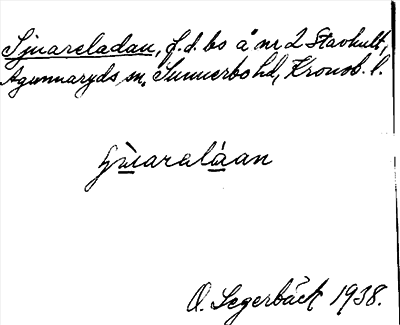 Sjuareladan, f.d. bs å nr 2 Stavhult,
Agunnaryds sn, Sunnerbo hd, Kronob. l.
ʃùaraláan
O. Segerbäck 1938.